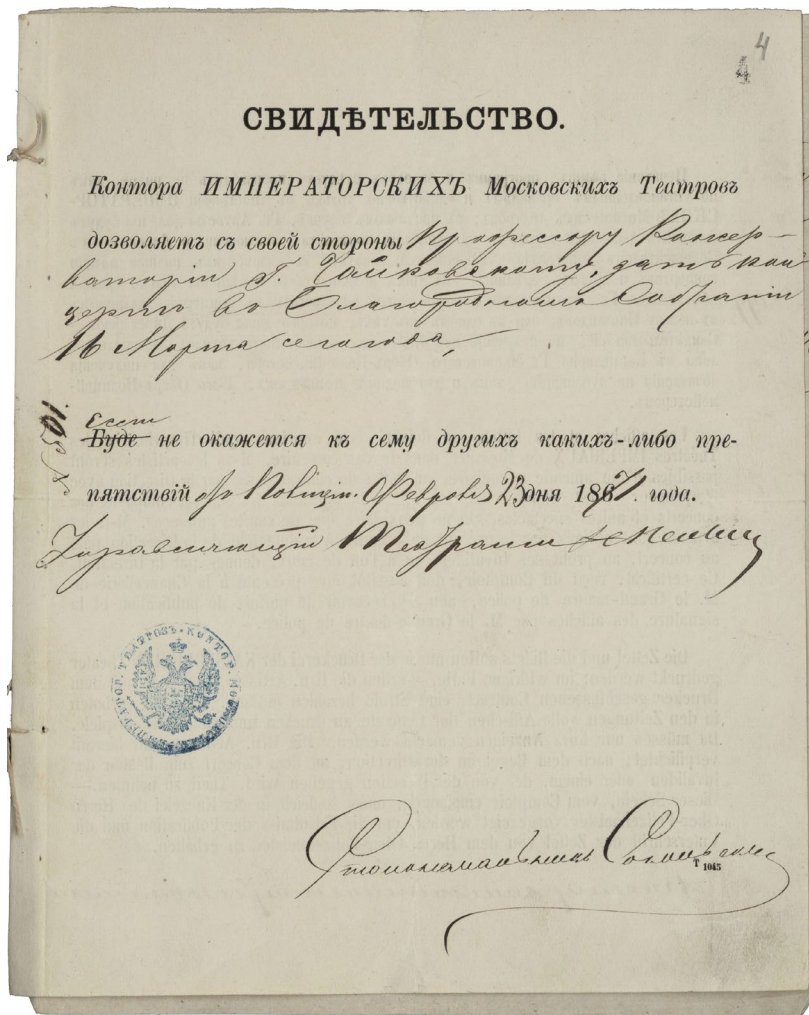 4
4
СВИДѢТЕЛЬСТВО.
Контора ИМПЕРАТОРСКИХЪ Московскихъ Театровъ
дозволяетъ съ своей стороны Профессору Консер-
ваторіи Г. Чайковскому, дать кон
цертъ въ Благородномъ Собраніи
16 Марта сего года,
Если
Буде не окажется къ сему другихъ какихъ-либо пре-
пятствій Февраля 23 дня 1871. года.
Управляющій Театрами
КОНТОР. МОСКОВ. ИМПЕРАТОР. ТЕАТРОВЪ
Столоначальникъ
Т 1045